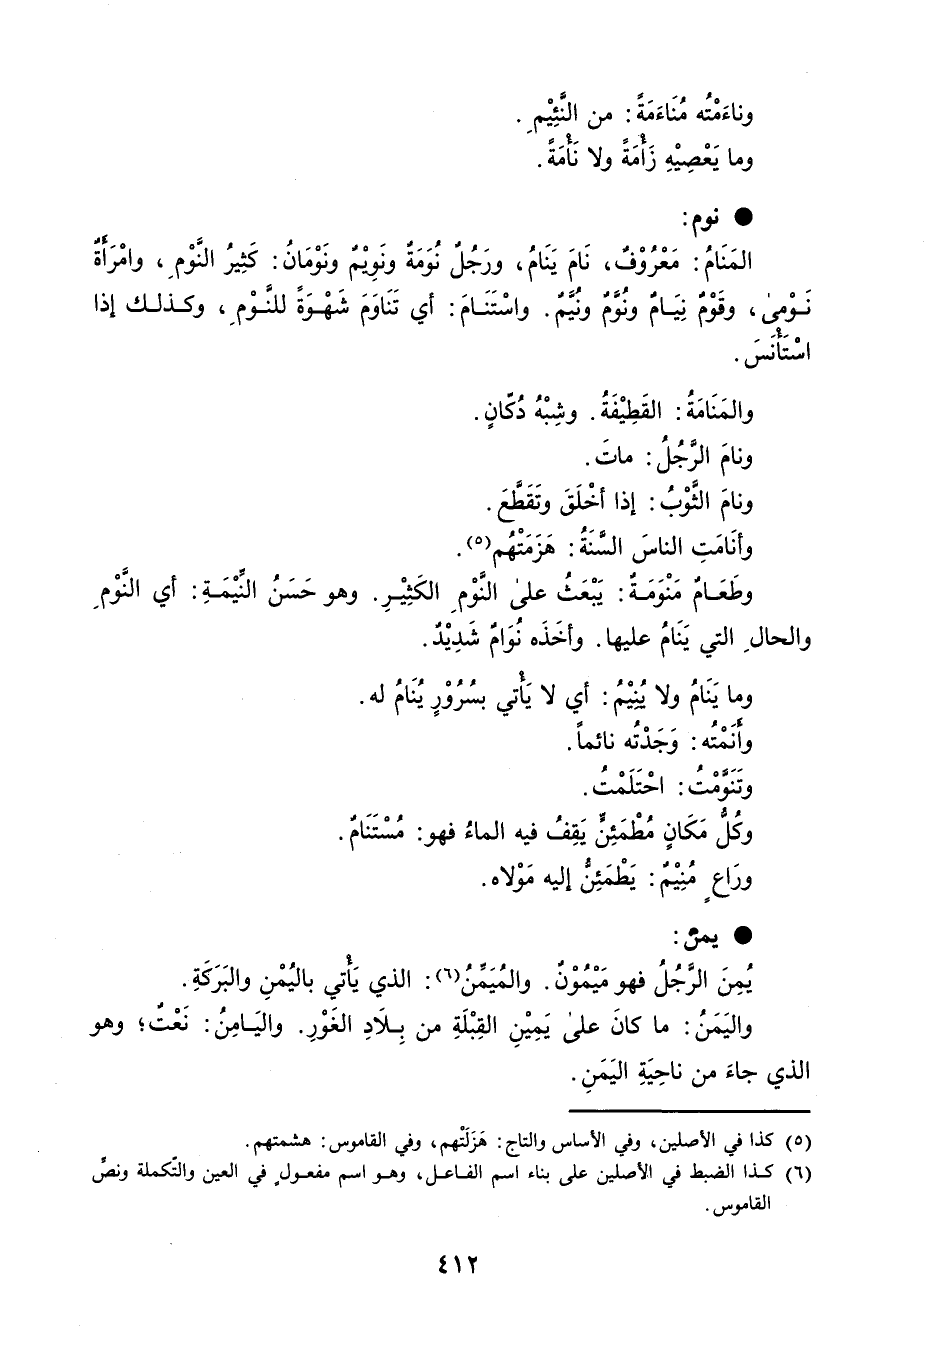 وناءَمْتُه مُنَاءَمَةً: من النَّئِيْمِ.
وما يَعْصِيْهِ زَأْمَةً ولا نَأْمَةً.
● نوم:
المَنَامُ: مَعْرُوْفٌ، نَامَ يَنَامُ، ورَجُلٌ نُوَمَةٌ ونَوِيْمٌ ونَوْمَانُ: كَثِيرُ النَّوْمِ، وامْرَأَةٌ
نَوْمىٰ، وقَوْمٌ نِيَامٌ ونُوَّمٌ ونُيَّمٌ. واسْتَنَامَ: أي تَنَاوَمَ شَهْوَةً للنَّوْمِ، وكذلك إذا
اسْتَأْنَسَ.
والمَنَامَةُ: القَطِيْفَةُ. وشِبْهُ دُكّانٍ.
ونامَ الرَّجُلُ: ماتَ.
ونامَ الثَّوْبُ: إذا أخْلَقَ وتَقَطَّعَ.
وأنَامَتِ الناسَ السَّنَةُ: هَزَمَتْهُم(٥).
وطَعَامٌ مَنْوَمَةٌ: يَبْعَثُ علىٰ النَّوْمِ الكَثِيْرِ. وهو حَسَنُ النِّيْمَةِ: أي النَّوْمِ
والحالِ التي يَنَامُ عليها. وأخَذَه نُوَامٌ شَدِيْدٌ.
وما يَنَامُ ولا يُنِيْمُ: أي لا يَأْتي بسُرُوْرٍ يُنَامُ له.
وأَنَمْتُه: وَجَدْتُه نائماً.
وتَنَوَّمْتُ: احْتَلَمْتُ.
وكُلُّ مَكَانٍ مُطْمَئِنٍّ يَقِفُ فيه الماءُ فهو: مُسْتَنَامٌ.
ورَاعٍ مُنِيْمٌ: يَطْمَئِنُّ إليه مَوْلاه.
● يمن:
يُمِنَ الرَّجُلُ فهو مَيْمُوْنٌ. والمُيَمِّنُ(٦): الذي يَأْتي باليُمْنِ والبَرَكَةِ.
واليَمَنُ: ما كانَ علىٰ يَمِيْنِ القِبْلَةِ من بِلَادِ الغَوْرِ. واليَامِنُ: نَعْتٌ؛ وهو
الذي جاءَ من ناحِيَةِ اليَمَنِ.
(٥) كذا في الأصلين، وفي الأساس والتاج: هَزَلَتْهم، وفي القاموس: هشمتهم.
(٦) كذا الضبط في الأصلين على بناء اسم الفاعل، وهو اسم مفعولٍ في العين والتّكملة ونصِّ
القاموس.
٤١٢